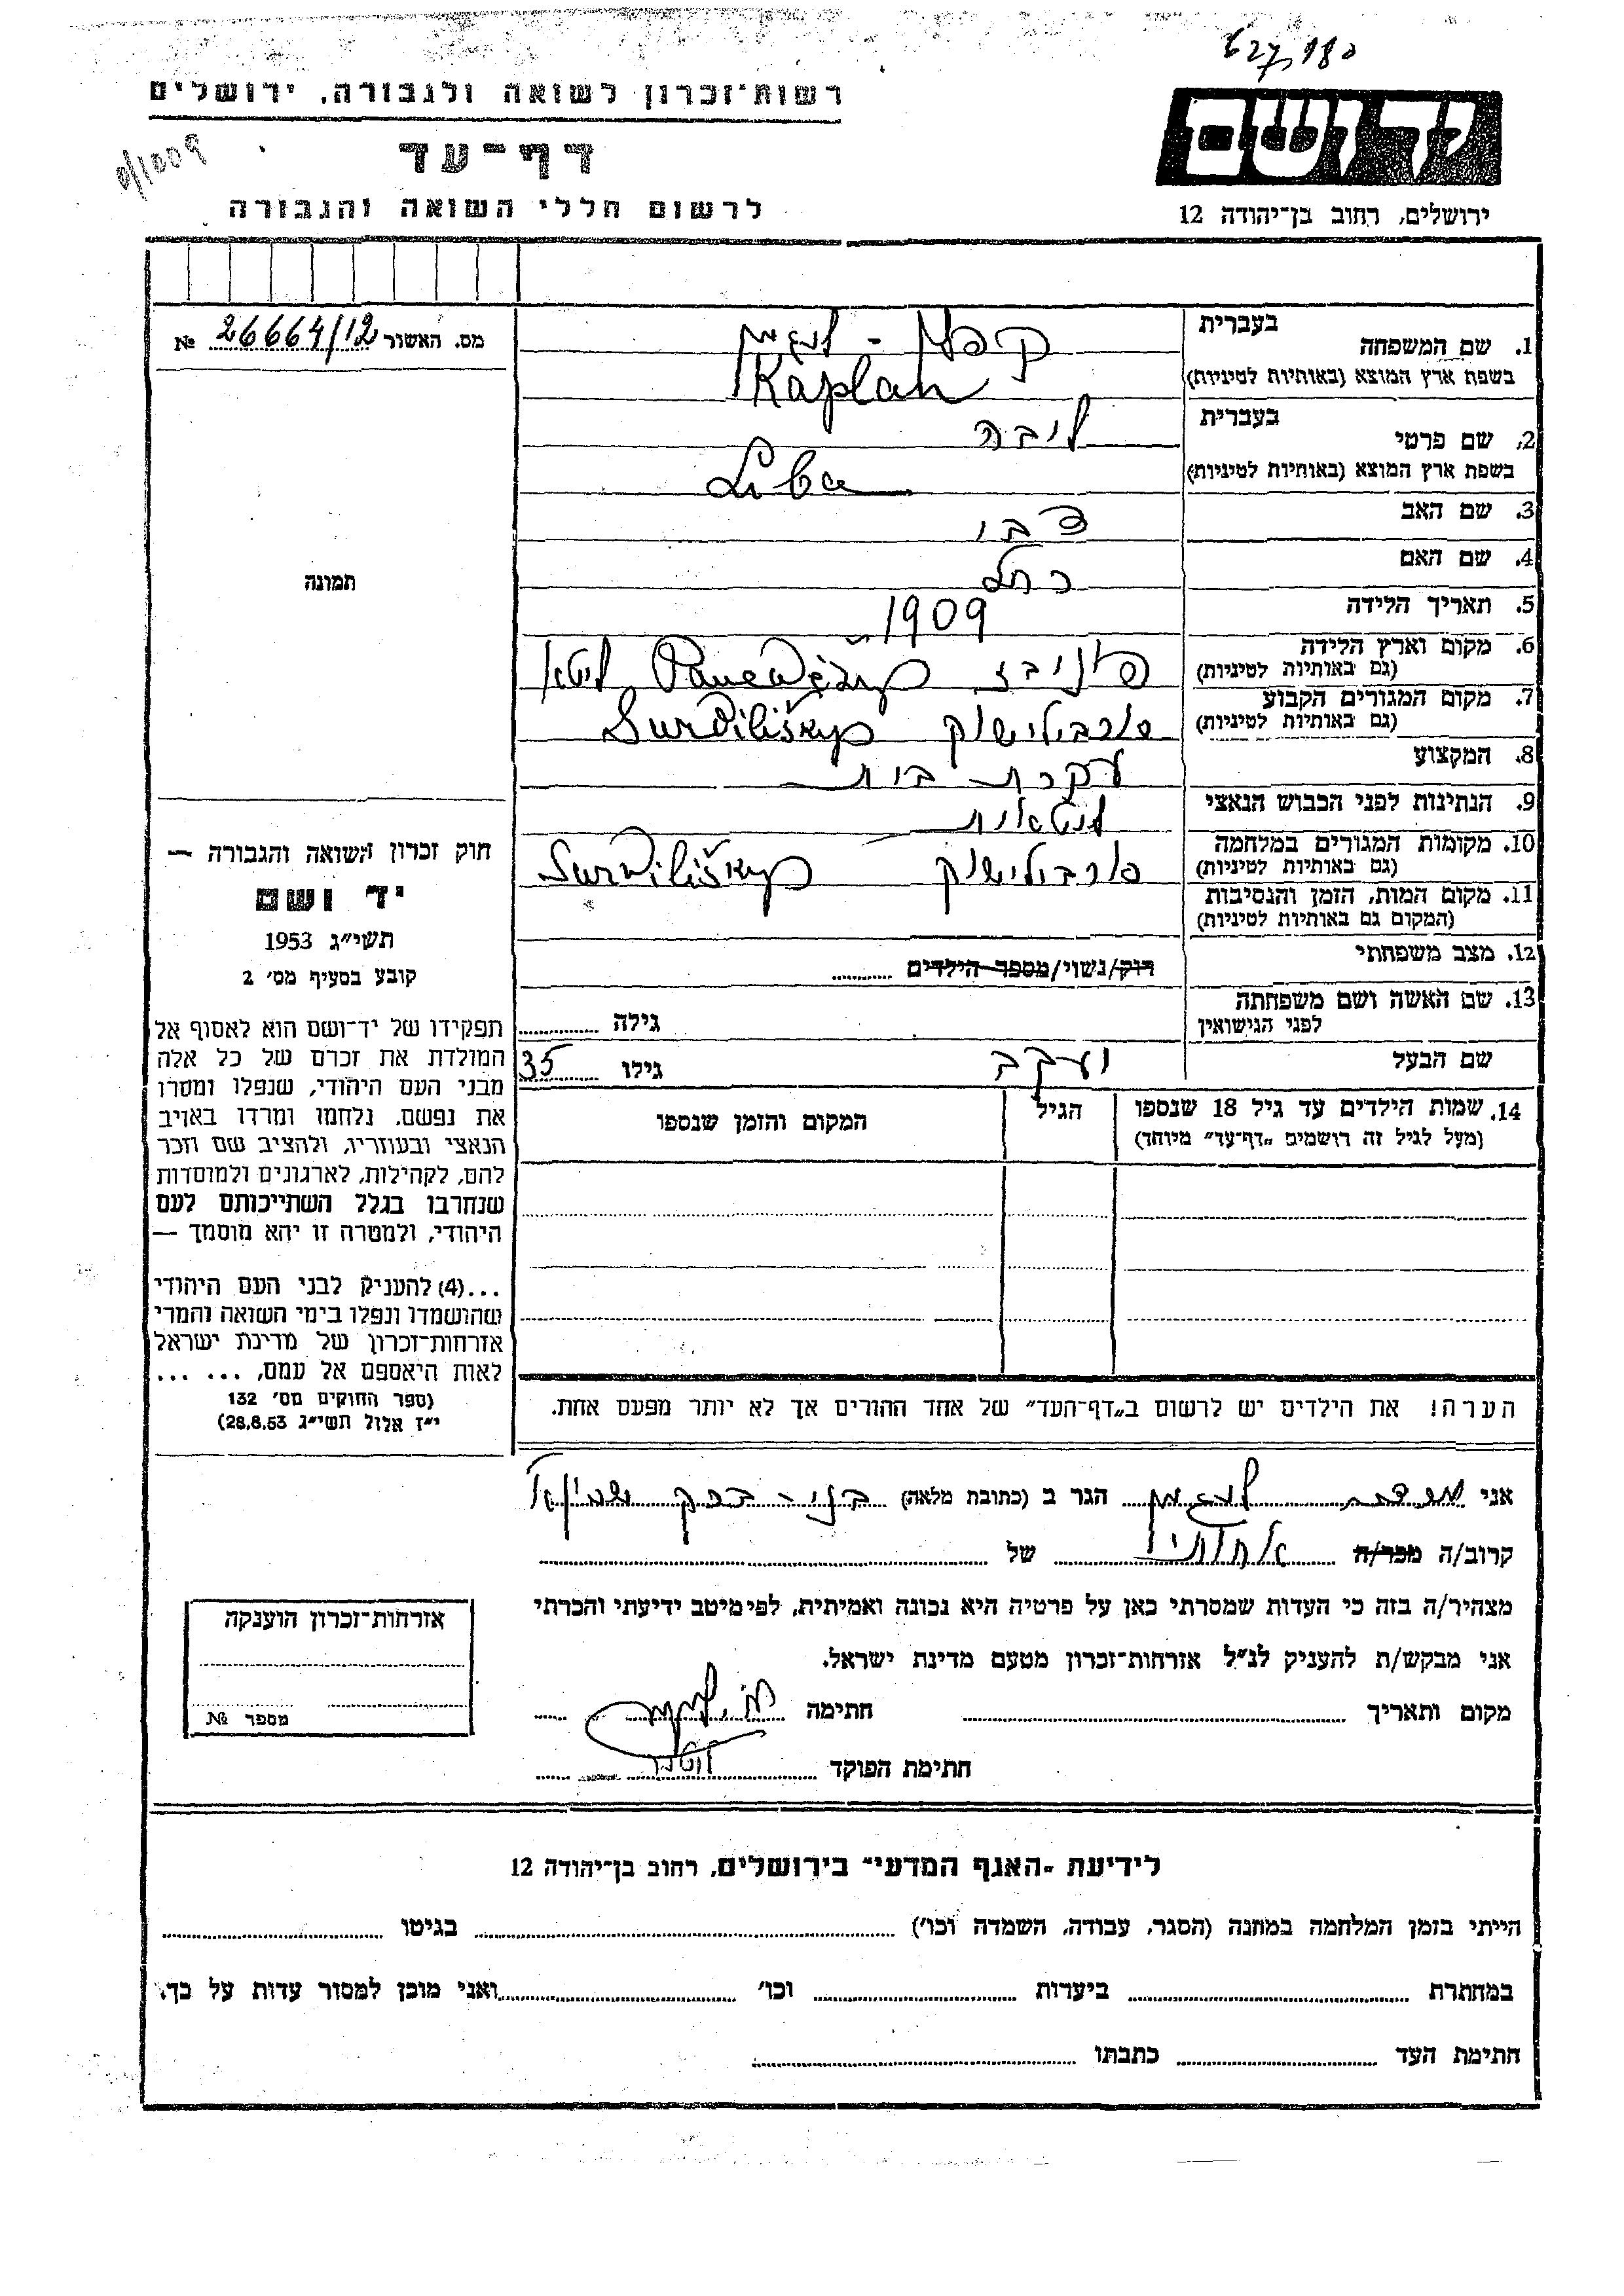 627180
רשות־זכרון לשואה ולגבורה, ירושלים
0/1009
דף־עד
לרשום חללי השואה והגבורה
יד ושם
ירושלים, רחוב בן־יהודה 12
מס. האשור 26664/12 №
תמונה
חוק זכרון השואה והגבורה —
יד ושם
תשי״ג 1953
קובע בסעיף מס׳ 2
תפקידו של יד־ושם הוא לאסוף אל
המולדת את זכרם של כל אלה
מבני העם היהודי, שנפלו ומסרו
את נפשם, נלחמו ומרדו באויב
הנאצי ובעוזריו, ולהציב שם וזכר
להם, לקהילות, לארגונים ולמוסדות
שנחרבו בגלל השתייכותם לעם
היהודי, ולמטרה זו יהא מוסמך —
...(4) להעניק לבני העם היהודי
שהושמדו ונפלו בימי השואה והמרי
אזרחות־זכרון של מדינת ישראל
לאות היאספם אל עמם, ... ...
(ספר החוקים מס׳ 132
י״ז אלול תשי״ג 28.8.53)
בעברית
1. שם המשפחה קפלן -
בשפת ארץ המוצא (באותיות לטיניות) Kaplan
בעברית
2. שם פרטי ליבה
בשפת ארץ המוצא (באותיות לטיניות) Liba
3. שם האב צבי
4. שם האם רחל
5. תאריך הלידה 1909
6. מקום וארץ הלידה פוניבז Panevėžys ליטא
(גם באותיות לטיניות)
7. מקום המגורים הקבוע סורבילישוק Surviliškys
(גם באותיות לטיניות)
8. המקצוע עקרת בית
9. הנתינות לפני הכבוש הנאצי ליטאית
10. מקומות המגורים במלחמה סורבילישוק Surviliškys
(גם באותיות לטיניות)
11. מקום המות, הזמן והנסיבות
(המקום גם באותיות לטיניות)
12. מצב משפחתי רוק/נשוי/מספר הילדים
13. שם האשה ושם משפחתה גילה
לפני הנישואין
שם הבעל יעקב גילו 35
14. שמות הילדים עד גיל 18 שנספו הגיל המקום והזמן שנספו
(מעל לגיל זה רושמים „דף־עד״ מיוחד)
הערה! את הילדים יש לרשום ב„דף־העד״ של אחד ההורים אך לא יותר מפעם אחת.
אני הגר ב (כתובת מלאה) בני-ברק
קרוב/ה מכר/ה אחותי של
מצהיר/ה בזה כי העדות שמסרתי כאן על פרטיה היא נכונה ואמיתית, לפי מיטב ידיעתי והכרתי
אני מבקש/ת להעניק לנ״ל אזרחות־זכרון מטעם מדינת ישראל.
מקום ותאריך חתימה
חתימת הפוקד
אזרחות־זכרון הוענקה
מספר №
לידיעת „האגף המדעי״ בירושלים, רחוב בן־יהודה 12
הייתי בזמן המלחמה במחנה (הסגר, עבודה, השמדה וכו׳) בגיטו
במחתרת ביערות וכו׳ ואני מוכן למסור עדות על כך.
חתימת העד כתבתו